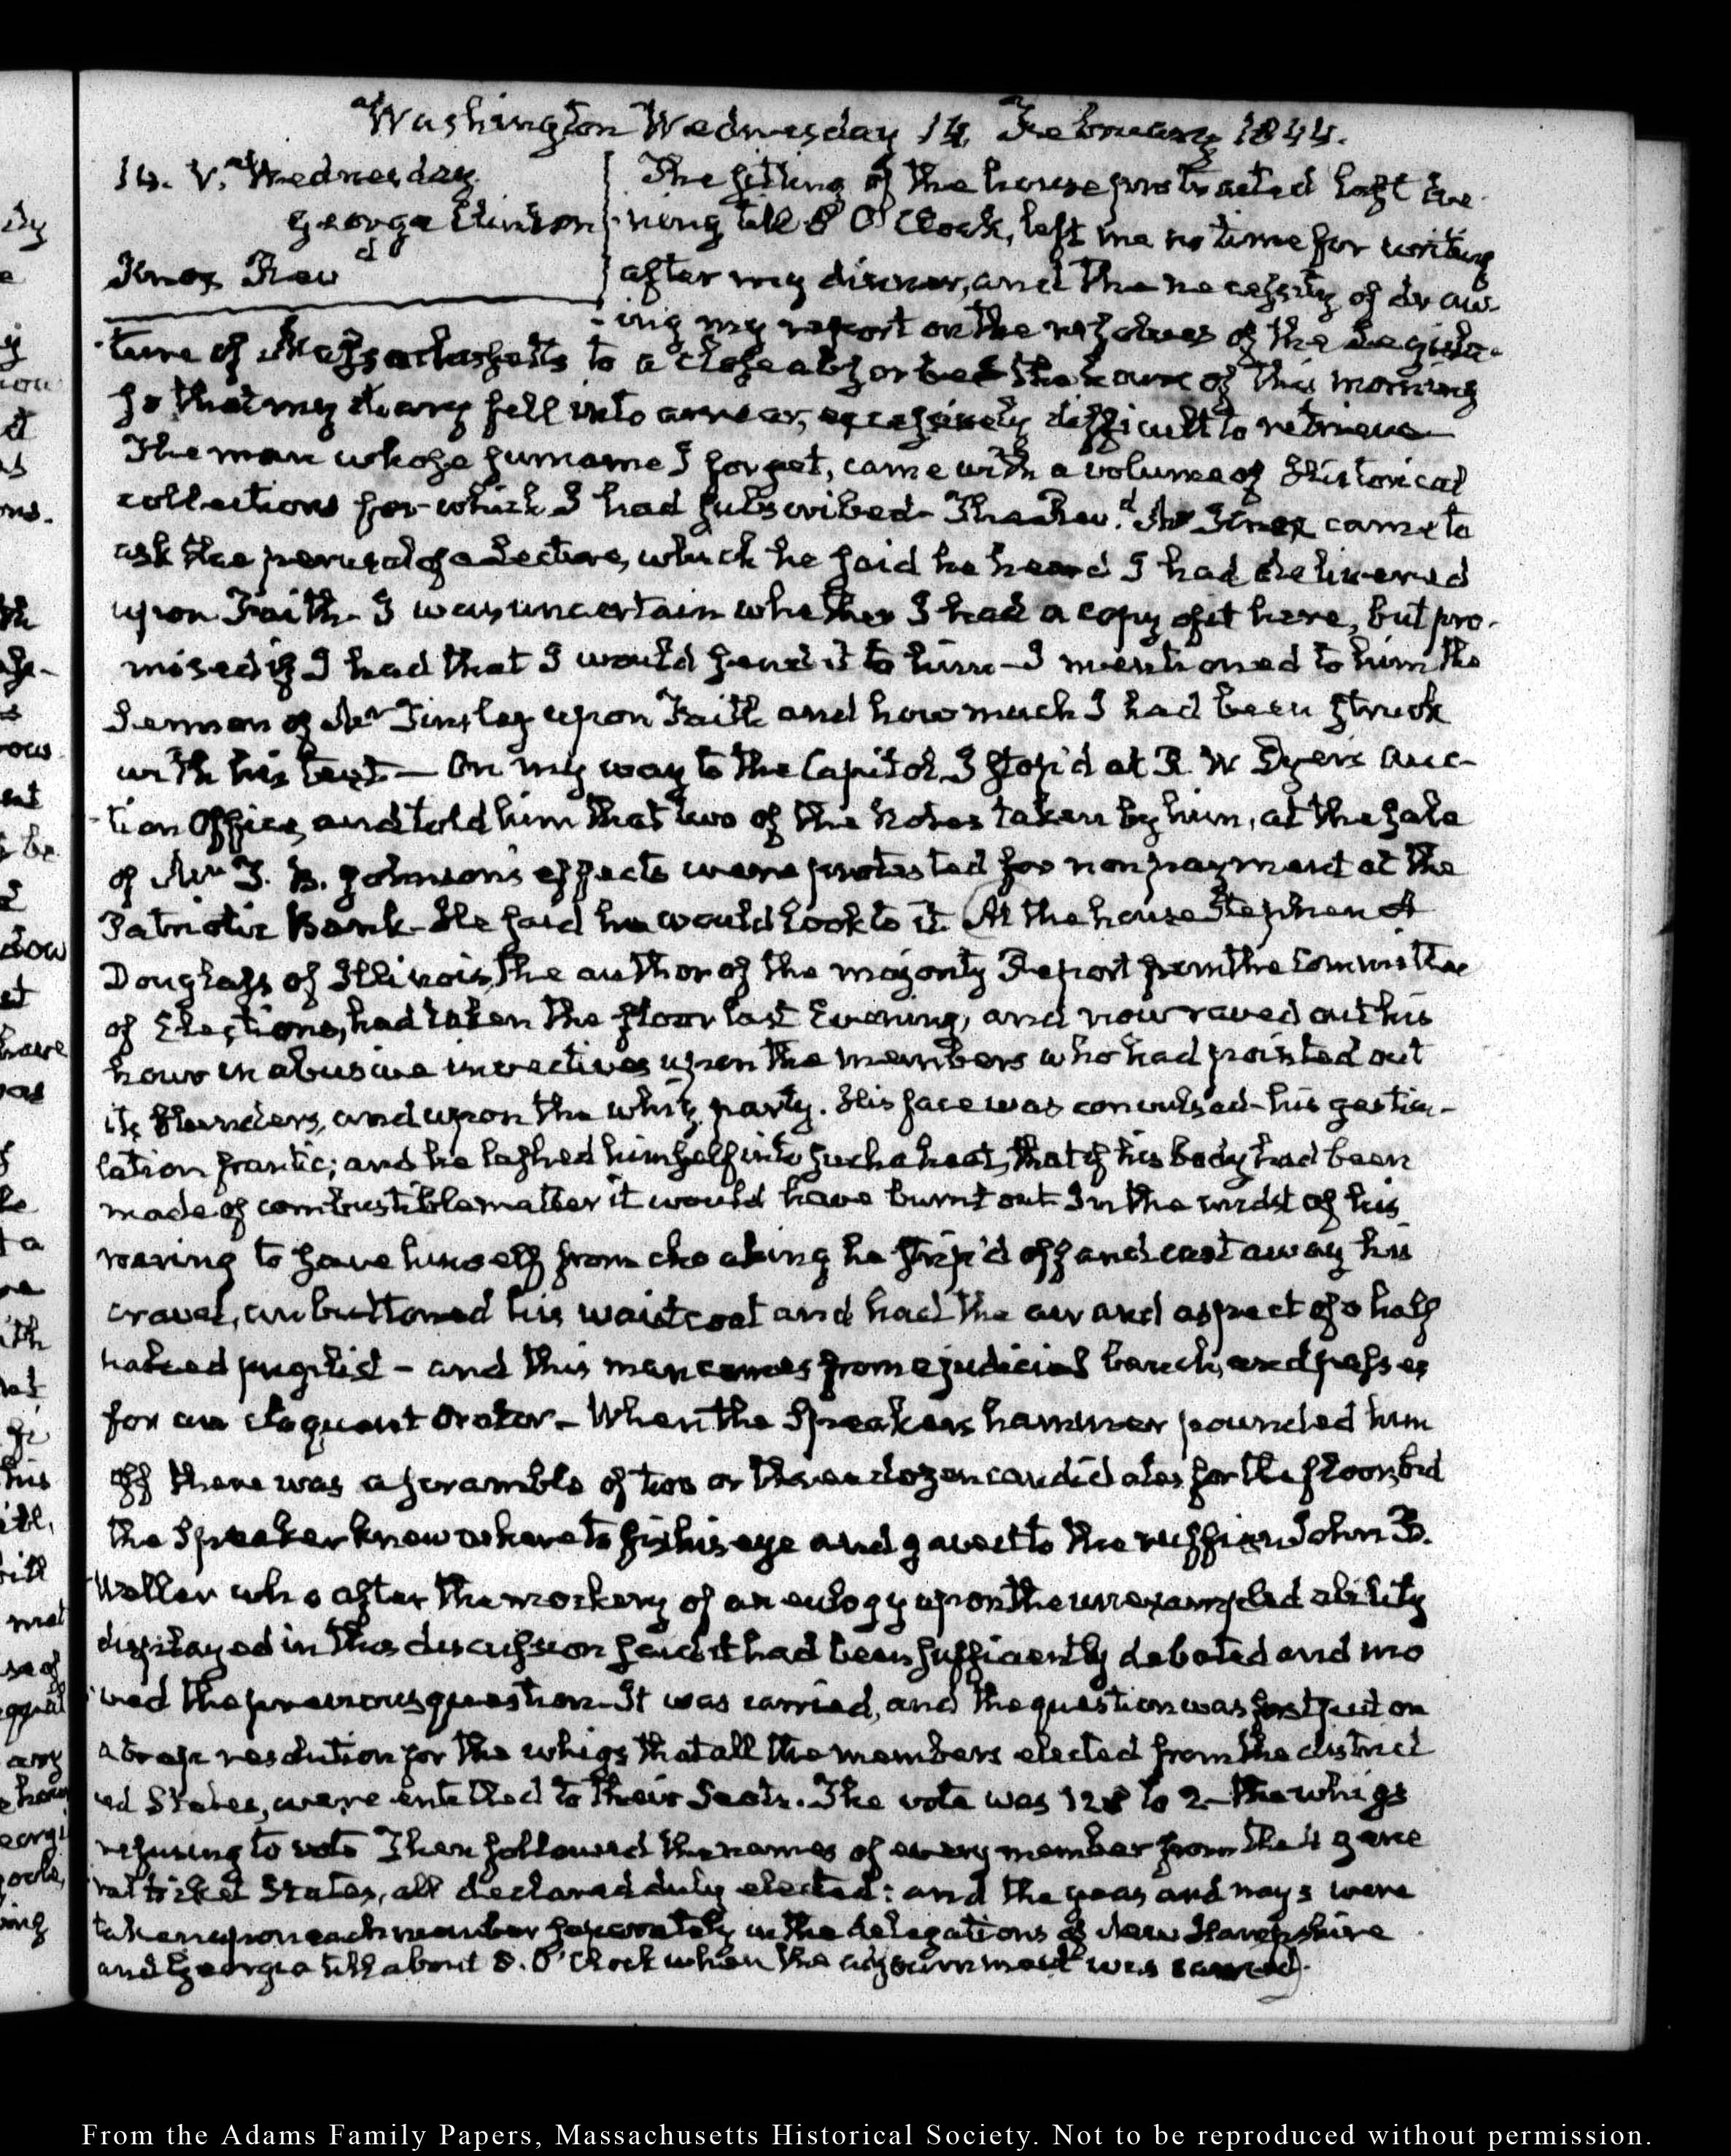 Washington Wednesday 14. February 1844.
14. V. Wednesday.
George Clinton
Knox Revd
The sitting of the house protracted last Eve-
ning till 8 O'Clock, left me no time for writing
after my dinner, and the necessity of draw-
ing my report on the resolves of the Legisla-
ture of Massachusetts to a close absorbed the hours of this morning
so that my diary fell into arrear, excessively difficult to retrieve
The man whose surname I forget, came with a volume of Historical
collections for which I had subscribed. The Revd. Mr Knox came to
ask the perusal of a Lecture, which he said he heard I had delivered
upon Faith. I was uncertain whether I had a copy of it here, but pro-
mised if I had that I would send it to him—I mentioned to him the
Sermon of Mr Tinsley upon Faith and how much I had been struck
with his text—On my way to the Capitol I stop'd at R. W Dyer's Auc-
tion Office, and told him that two of the notes taken by him, at the sale
of Mr T. B. Johnson's effects were protested for non payment at the
Patriotic Bank—He said he would look to it. (At the house Stephen A
Douglass of Illinois, the author of the majority Report from the Committee
of Elections, had taken the floor last Evening, and now raved out his
hour in abusive invectives upon the members who had pointed out
its slanders, and upon the whig party. His face was convulsed—his gesticu-
lation frantic; and he lashed himself into such a heat, that if his body had been
made of combustible matter it would have burnt out. In the midst of his
roaring to save himself from choaking he strip'd off and cast away his
cravat, unbuttoned his waistcoat and had the air and aspect of a half
naked pugilist—and this man comes from a judicial bench, and passes
for an eloquent orator—When the Speakers hammer pounded him
off there was a scramble of two or three dozen candidates for the floor, but
the Speaker knew where to fix his eye and gave it to the ruffian John B.
Weller who after the mockery of an eulogy upon the unexampled ability
displayed in this discussion said it had been sufficiently debated and mo
ved the previous question. It was carried, and the question was first put on
a resolution for the whigs that all the members elected from the district
ed States, were entitled to their Seats. The vote was 128 to 2—the whigs
refusing to vote Then followed the names of every member from the 4 gene
ral ticket States, all declared duly elected: and the yeas and nays were
taken upon each member separately in the delegations of New Hampshire
and Georgia till about 8. O'Clock when the adjournment was carried).
From the Adams Family Papers, Massachusetts Historical Society. Not to be reproduced without permission.